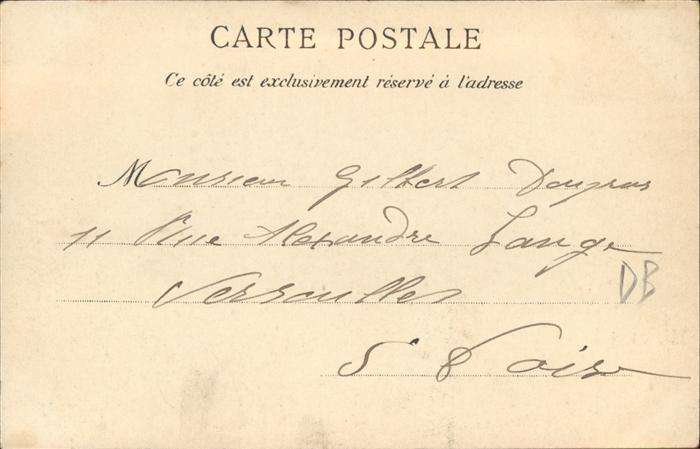 CARTE POSTALE
Ce côté est exclusivement réservé à l'adresse
Monsieur Gilbert
11 Rue Alexandre Lange
Versailles
DB
S & Oise